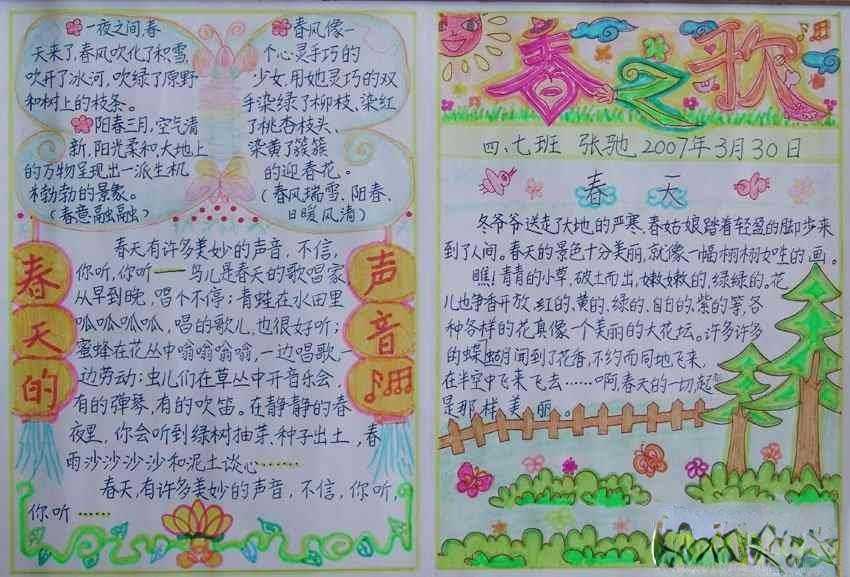 一夜之间,春
天来了,春风吹化了积雪,
吹开了冰河,吹绿了原野
和树上的枝条。
阳春三月,空气清
新,阳光柔和,大地上
的万物呈现出一派生机
勃勃的景象。
(春意融融)
春风像一
个心灵手巧的
少女,用她灵巧的双
手染绿了柳枝、染红
了桃杏枝头、
染黄了簇簇
的迎春花。
(春风瑞雪、阳春、
日暖风清)
春天的
声音
春天有许多美妙的声音,不信,
你听,你听——鸟儿是春天的歌唱家,
从早到晚,唱个不停;青蛙在水田里
呱呱呱呱,唱的歌儿,也很好听;
蜜蜂在花丛中嗡嗡嗡嗡,一边唱歌,一
边劳动;虫儿们在草丛中开音乐会,
有的弹琴,有的吹笛。在静静的春
夜里,你会听到绿树抽芽,种子出土,春
雨沙沙沙沙和泥土谈心……
春天,有许多美妙的声音,不信,你听,
你听……
春之歌
四.七班 张驰 2007年3月30日
春天
冬爷爷送走了大地的严寒,春姑娘踏着轻盈的脚步来
到了人间。春天的景色十分美丽,就像一幅栩栩如生的画。
瞧!青青的小草,破土而出,嫩嫩的,绿绿的。花
儿也争香开放,红的、黄的、绿的、白的、紫的等,各
种各样的花真像一个美丽的大花坛。许多许多
的蝴蝶间到了花香,不约而同地飞来,
在半空中飞来飞去……啊,春天的一切起
是那样美丽。